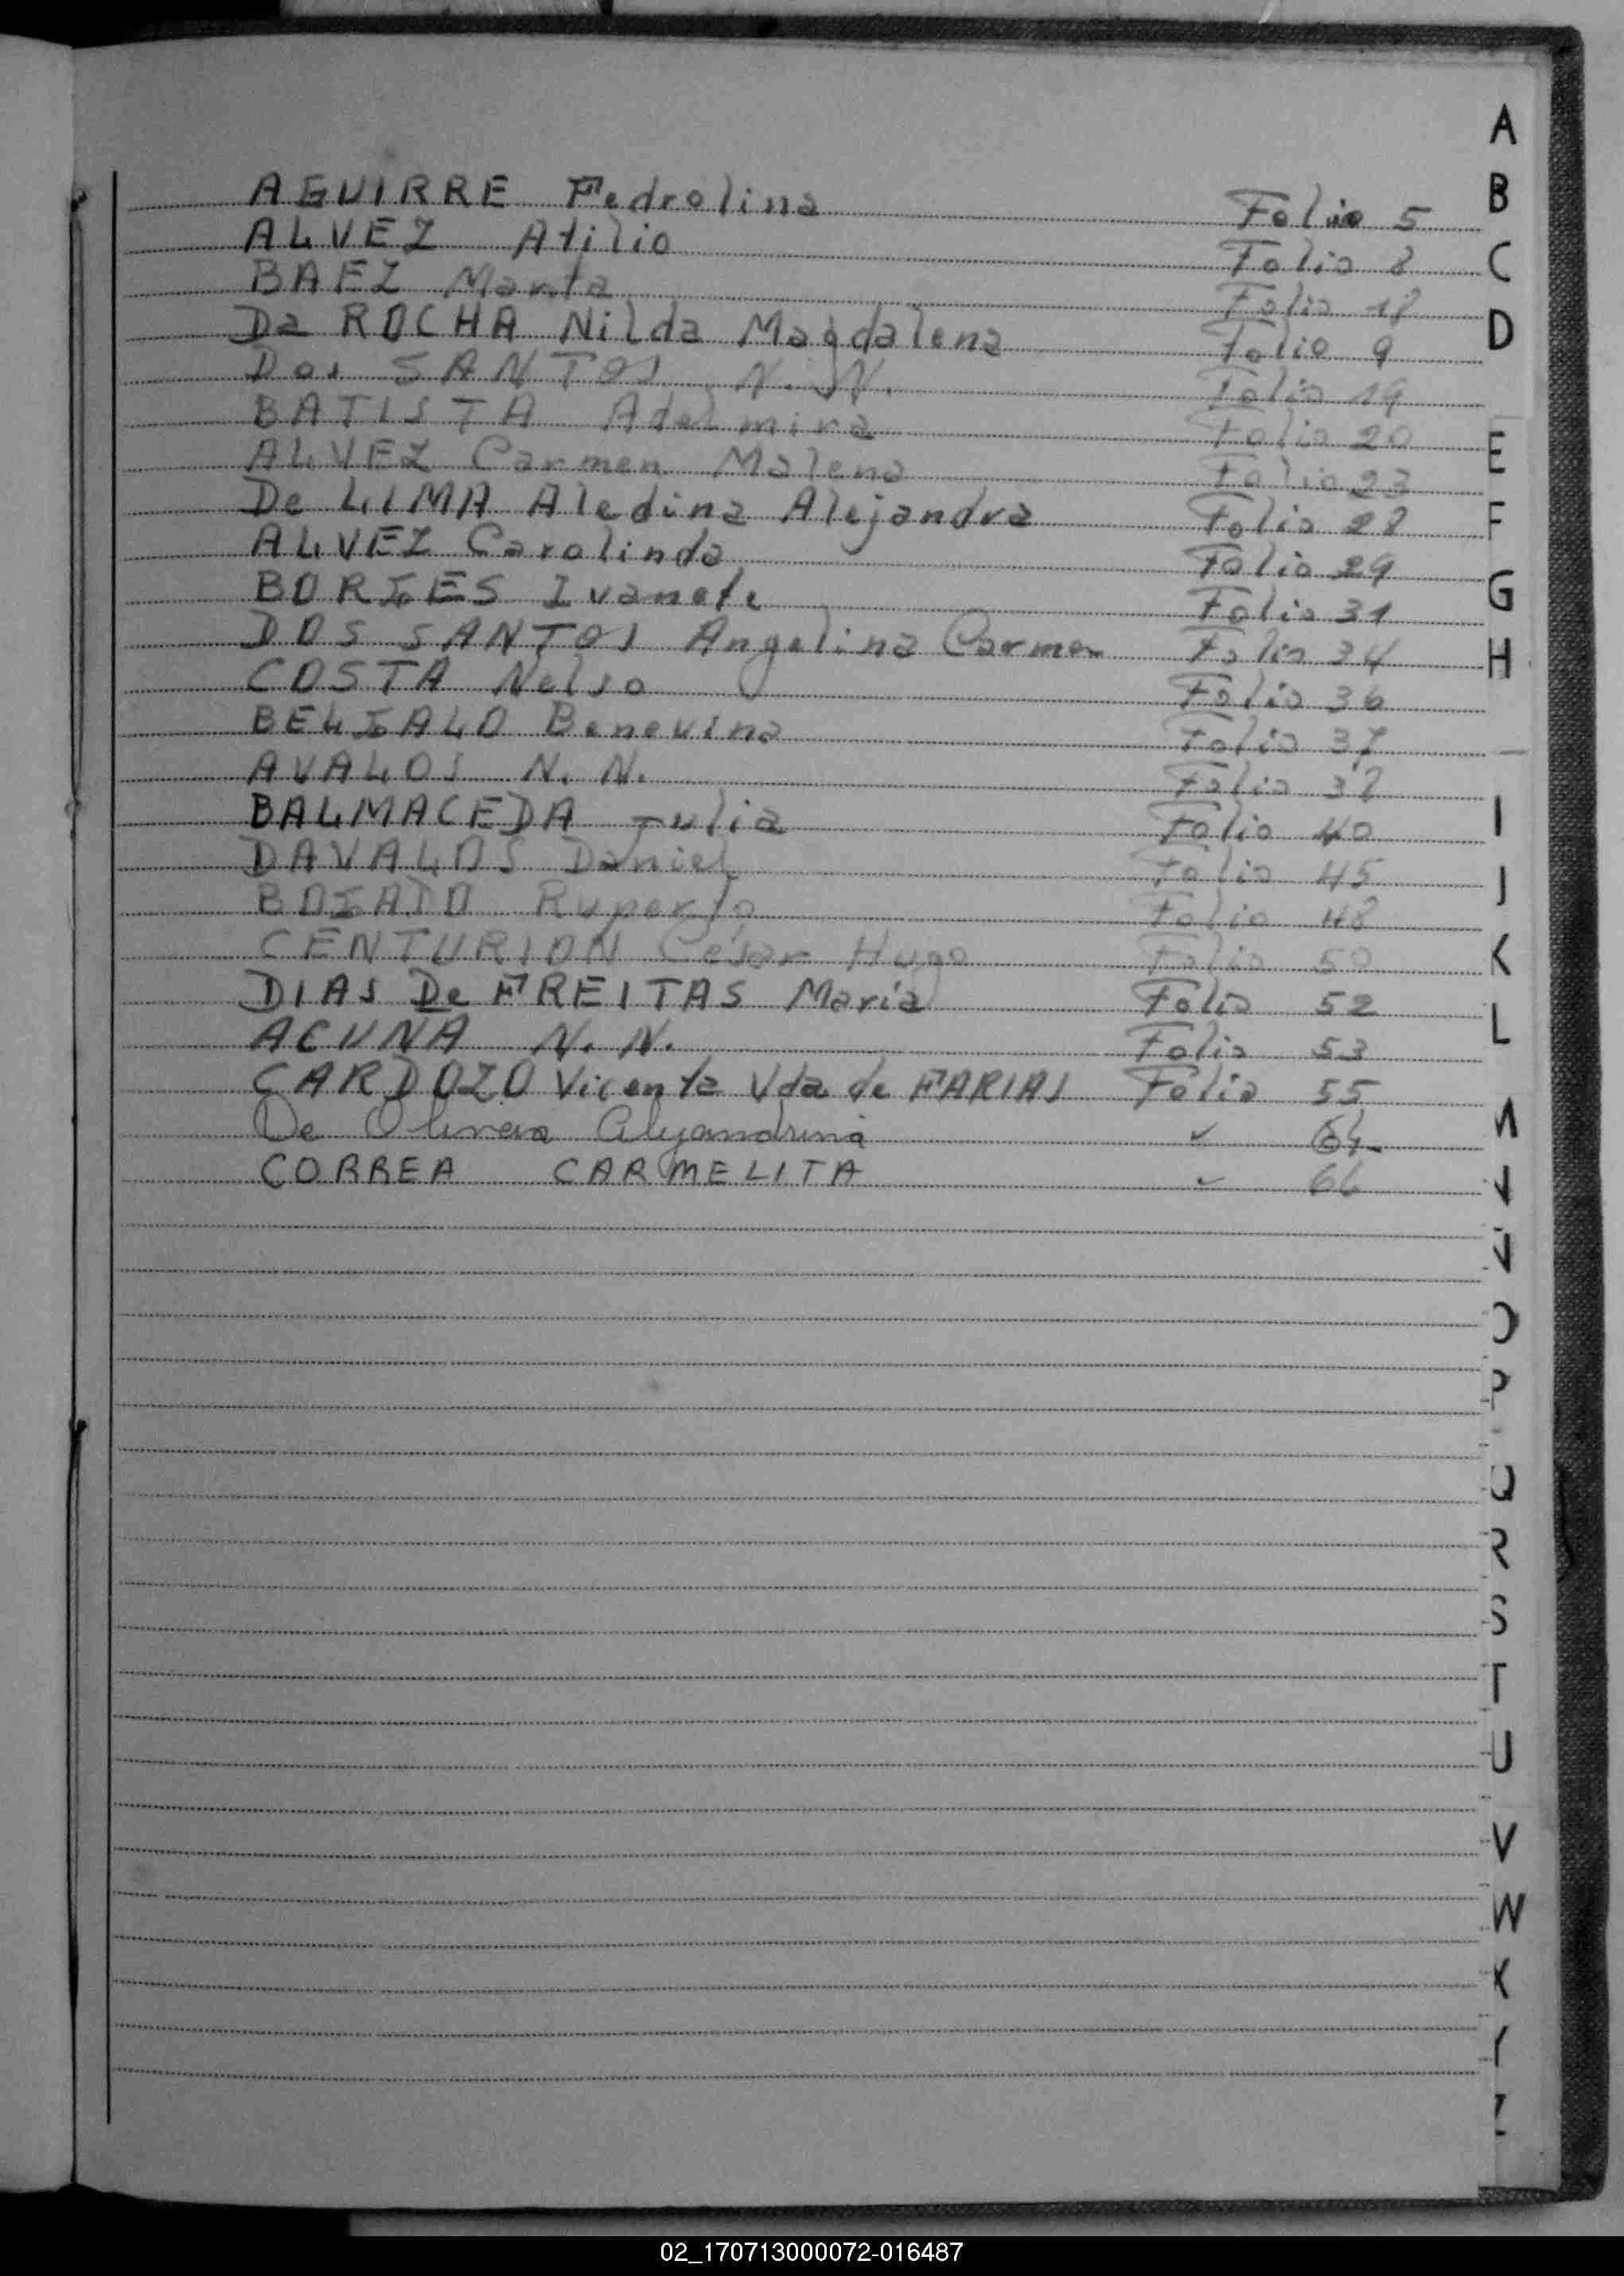 AGUIRRE Pedrolina Folio 5
ALVEZ Atilio Folio 8
BAEZ Marta Folio 18
Da ROCHA Nilda Magdalena Folio 9
Dos SANTOS N. N. Folio 19
BATISTA Adelmira Folio 20
ALVEZ Carmen Malena Folio 23
De LIMA Aledina Alejandra Folio 28
ALVEZ Carolinda Folio 29
BORGES Ivanete Folio 31
DOS SANTOS Angelina Carmen Folio 34
COSTA Nelso Folio 36
BELGALO Benevina Folio 37
AVALOS N. N. Folio 38
BALMACEDA Julia Folio 40
DAVALOS Daniel Folio 45
BOGADO Ruperto Folio 48
CENTURION César Hugo Folio 50
DIAS De FREITAS Maria Folio 52
ACUNA N. N. Folio 53
CARDOZO Vicenta Vda de FARIAS Folio 55
De Olivera Alejandrina ✓ 64
CORREA CARMELITA ✓ 66
A
B
C
D
E
F
G
H
I
J
K
L
M
N
Ñ
O
P
Q
R
S
T
U
V
W
X
Y
Z
02_170713000072-016487